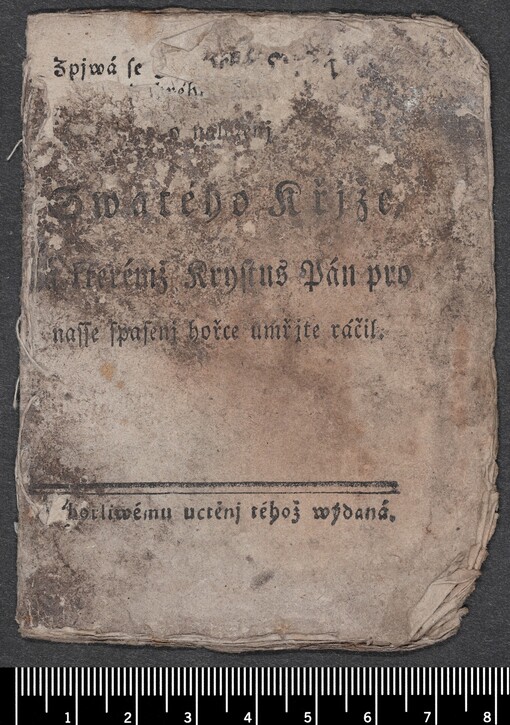 Zpjwá se
o nalezenj
Swatého Křjže,
kterémž Krystus Pán pro
nasse spasenj hořce umřjte ráčil.
horliwému uctěnj téhož wydaná.
1 2 3 4 5 6 7 8